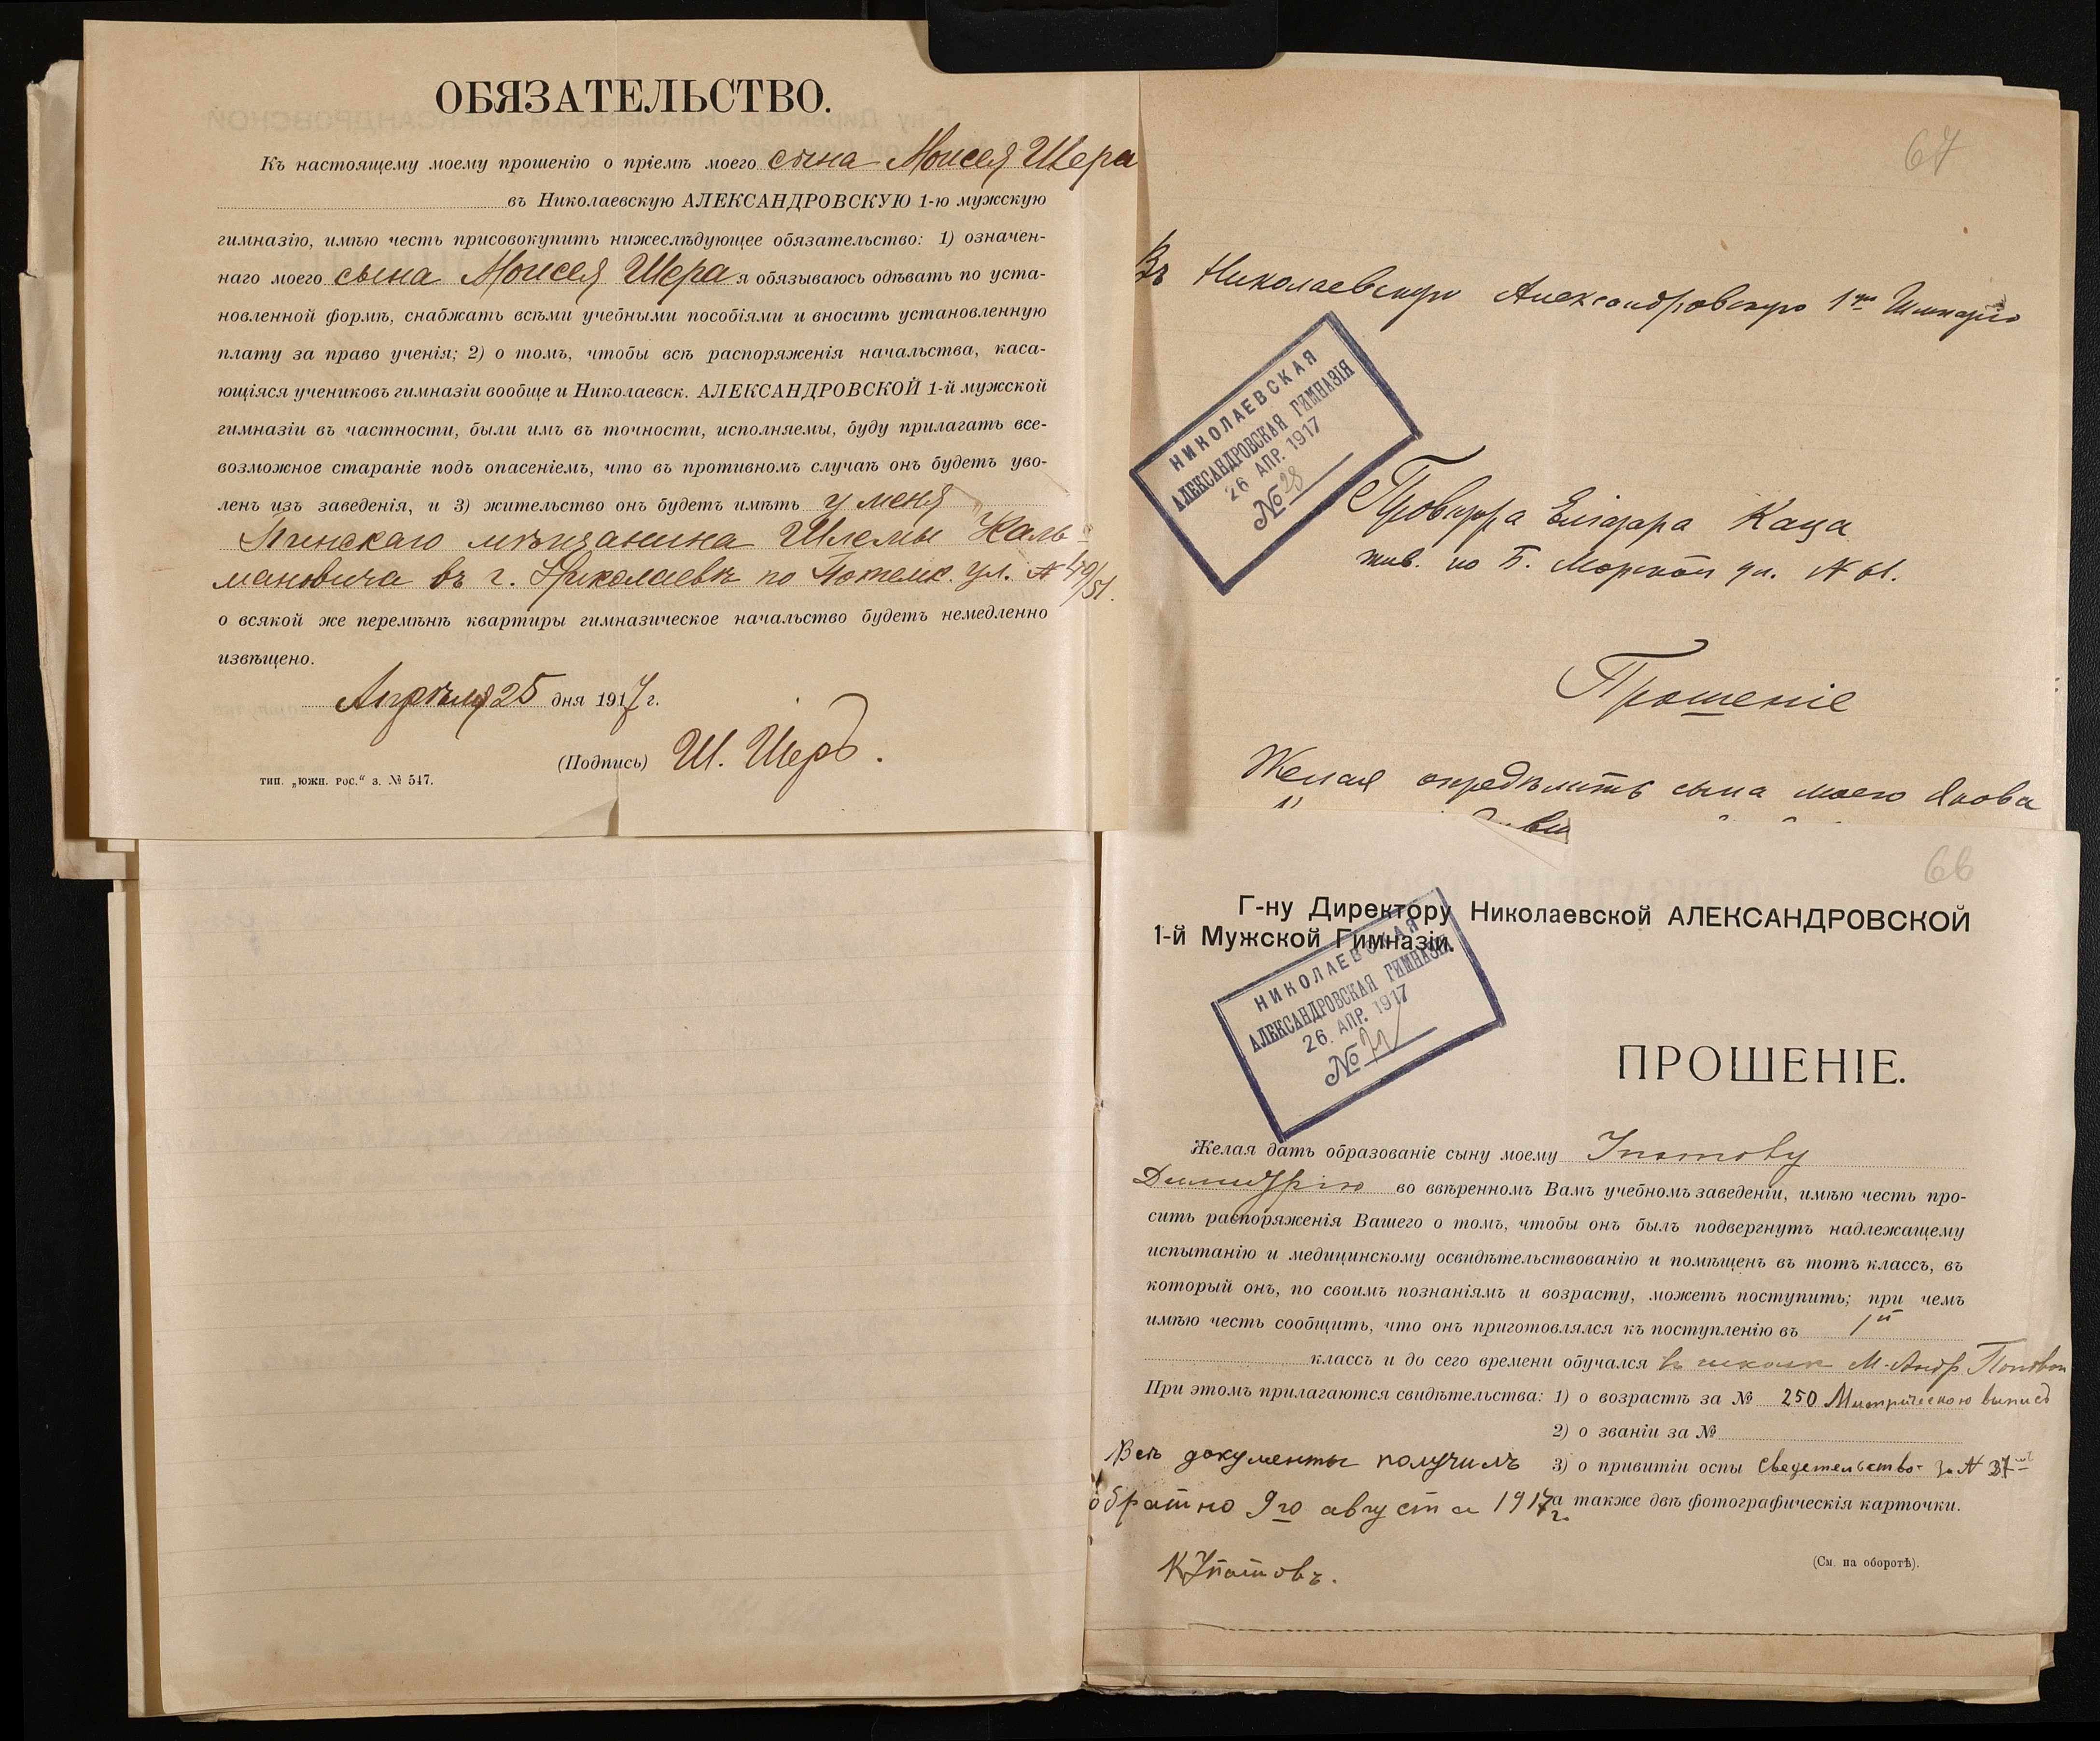 ОБЯЗАТЕЛЬСТВО.
Къ настоящему моему прошенію о пріемѣ моего сына Моисея Шера
въ Николаевскую АЛЕКСАНДРОВСКУЮ 1-ю мужскую
гимназію, имѣю честь присовокупить нижеслѣдующее обязательство: 1) означен-
наго моего сына Моисея Шера я обязываюсь одѣвать по уста-
новленной формѣ, снабжать всѣми учебными пособіями и вносить установленную
плату за право ученія; 2) о томъ, чтобы всѣ распоряженія начальства, каса-
ющіяся учениковъ гимназіи вообще и Николаевск. АЛЕКСАНДРОВСКОЙ 1-й мужской
гимназіи въ частности, были имъ въ точности, исполняемы, буду прилагать все-
возможное стараніе подъ опасеніемъ, что въ противномъ случаѣ онъ будетъ уво-
ленъ изъ заведенія, и 3) жительство онъ будетъ имѣть у меня
Пинскаго мѣщанина Шлемы Каль-
мановича въ г. Николаевѣ по Потемк. ул. № 49/51.
о всякой же перемѣнѣ квартиры гимназическое начальство будетъ немедленно
извѣщено.
Апрѣля 25 дня 1917 г.
(Подпись) Ш. Шеръ.
тип. „южн. рос.“ з. № 547.
67
Въ Николаевскую Александровскую 1ую Гимназію
НИКОЛАЕВСКАЯ
АЛЕКСАНДРОВСКАЯ ГИМНАЗІЯ
26 АПР. 1917
№ 28
Провизора Еліазара Каца
жив. по Б. Морской ул. № 61.
Прошеніе
Желая опредѣлить сына моего Якова
66
Г-ну Директору Николаевской АЛЕКСАНДРОВСКОЙ
1-й Мужской Гимназіи.
НИКОЛАЕВСКАЯ
АЛЕКСАНДРОВСКАЯ ГИМНАЗІЯ
26. АПР. 1917
№
ПРОШЕНІЕ.
Желая дать образованіе сыну моему Ипатову
Димитрію во ввѣренномъ Вамъ учебномъ заведеніи, имѣю честь про-
сить распоряженія Вашего о томъ, чтобы онъ былъ подвергнутъ надлежащему
испытанію и медицинскому освидѣтельствованію и помѣщенъ въ тотъ классъ, въ
который онъ, по своимъ познаніямъ и возрасту, можетъ поступить; при чемъ
имѣю честь сообщить, что онъ приготовлялся къ поступленію въ 1й
классъ и до сего времени обучался въ школѣ М. Андр. Поповой
При этомъ прилагаются свидѣтельства: 1) о возрастѣ за № 250 Метрическою выпись
2) о званіи за №
Всѣ документы получилъ 3) о привитіи оспы Сведетельство за № 37
обратно 9го августа 1917 г. а также двѣ фотографическія карточки.
(См. на оборотѣ).
К Ипатовъ.